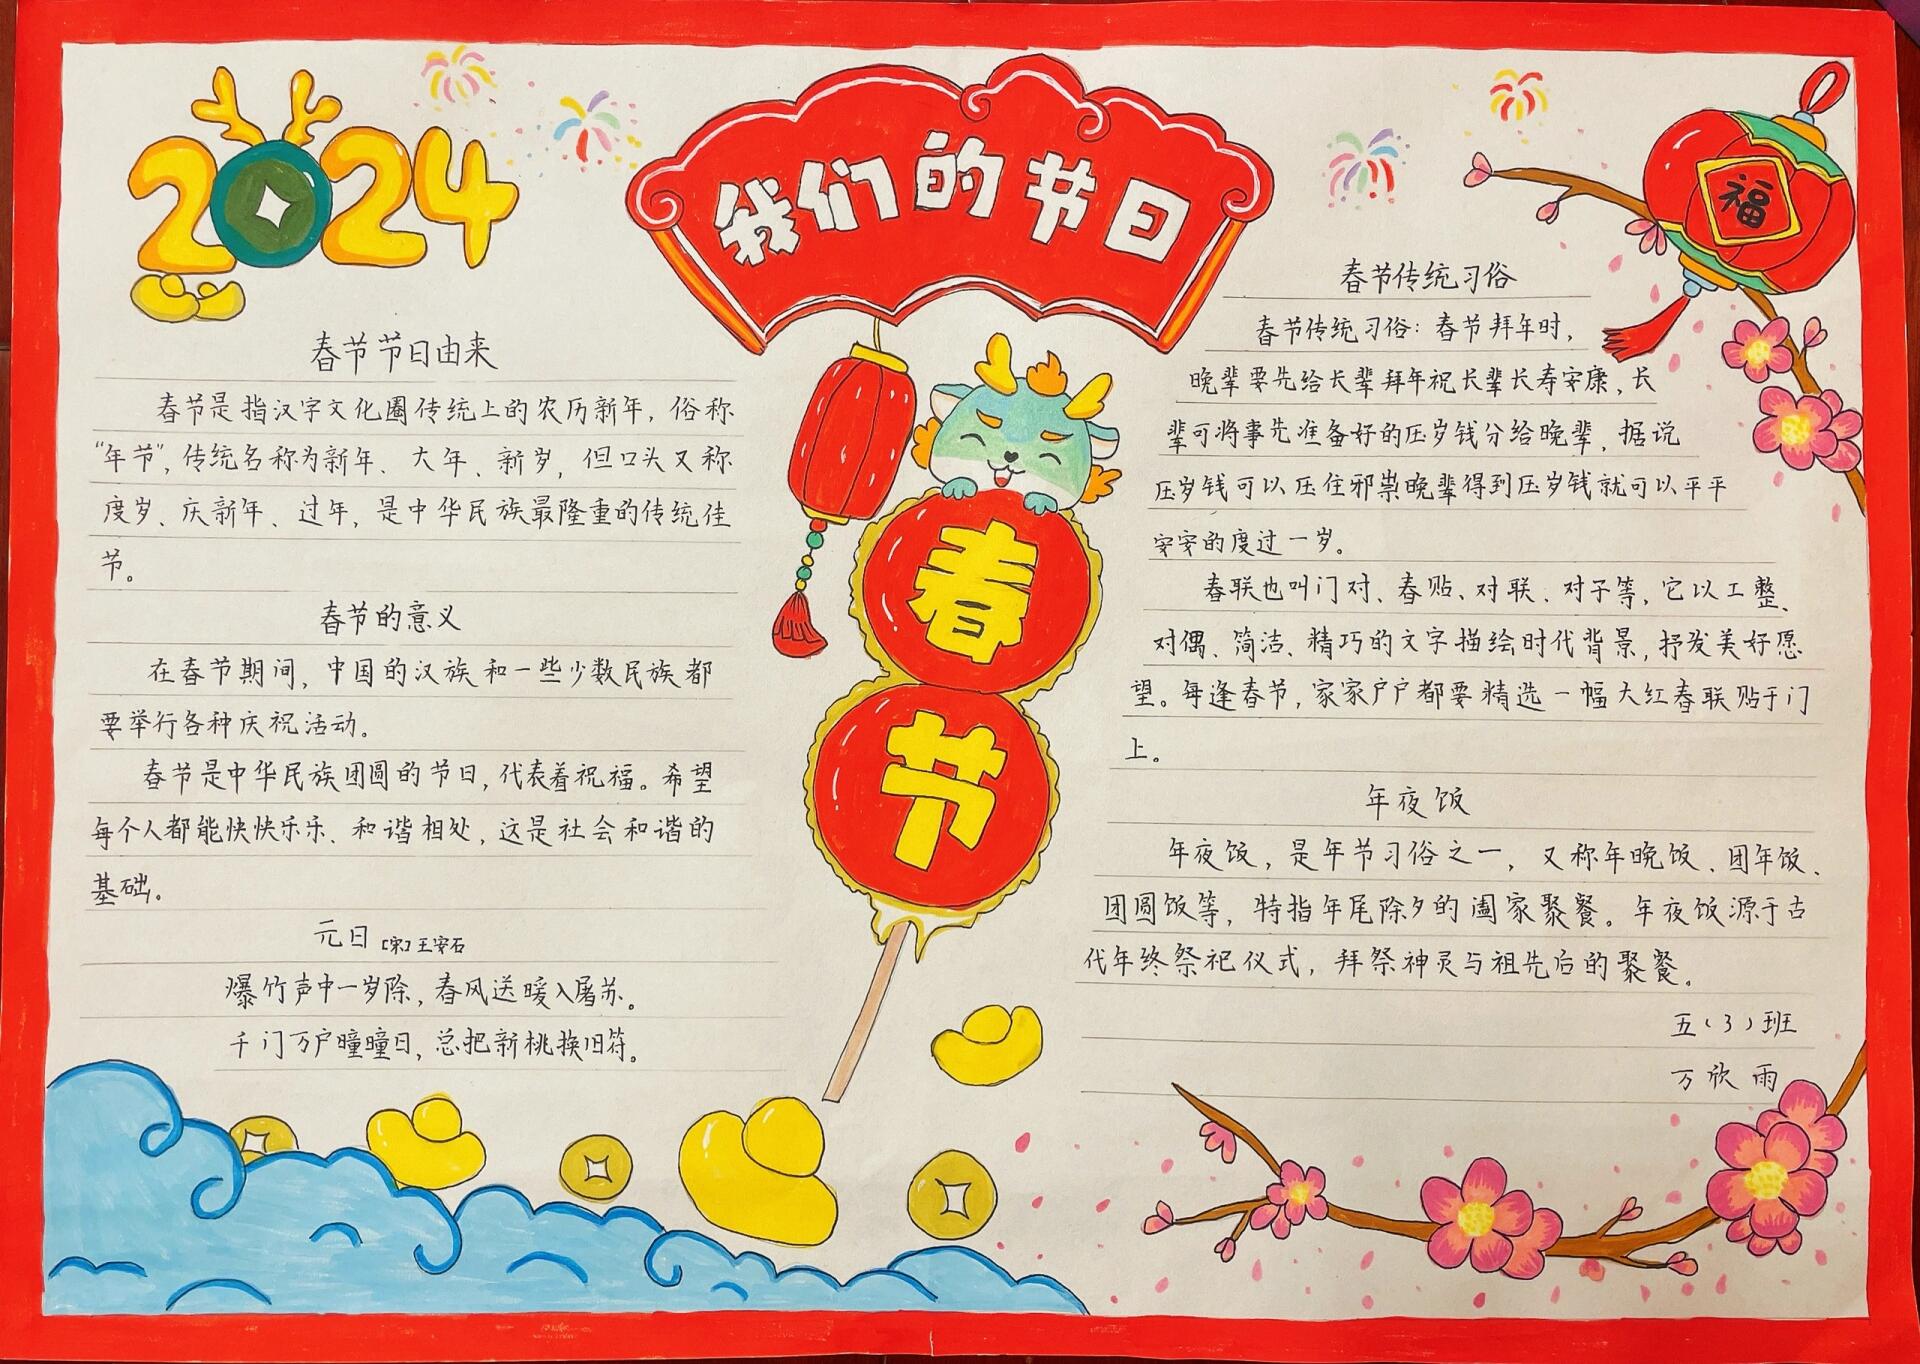 2024
我们的节日
福
春节
春节节日由来
春节是指汉字文化圈传统上的农历新年，俗称
“年节”，传统名称为新年、大年、新岁，但口头又称
度岁、庆新年、过年，是中华民族最隆重的传统佳
节。
春节的意义
在春节期间，中国的汉族和一些少数民族都
要举行各种庆祝活动。
春节是中华民族团圆的节日，代表着祝福。希望
每个人都能快快乐乐、和谐相处，这是社会和谐的
基础。
元日 [宋]王安石
爆竹声中一岁除，春风送暖入屠苏。
千门万户曈曈日，总把新桃换旧符。
春节传统习俗
春节传统习俗：春节拜年时，
晚辈要先给长辈拜年祝长辈长寿安康，长
辈可将事先准备好的压岁钱分给晚辈，据说
压岁钱可以压住邪祟晚辈得到压岁钱就可以平平
安安的度过一岁。
春联也叫门对、春贴、对联、对子等，它以工整、
对偶、简洁、精巧的文字描绘时代背景，抒发美好愿
望。每逢春节，家家户户都要精选一幅大红春联贴于门
上。
年夜饭
年夜饭，是年节习俗之一，又称年晚饭、团年饭、
团圆饭等，特指年尾除夕的阖家聚餐。年夜饭源于古
代年终祭祀仪式，拜祭神灵与祖先后的聚餐。
五（3）班
万欣雨